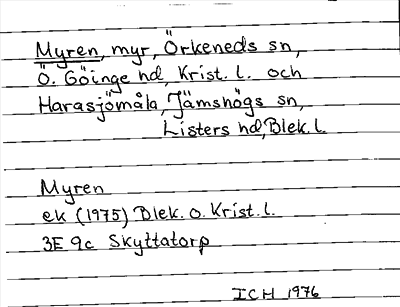 Myren, myr, Örkeneds sn,
Ö. Göinge hd, Krist. l. och
Harasjömåla, Jämshögs sn,
Listers hd, Blek. l.
Myren
ek (1975) Blek. o. Krist. l.
3E 9c Skyttatorp
ICH 1976